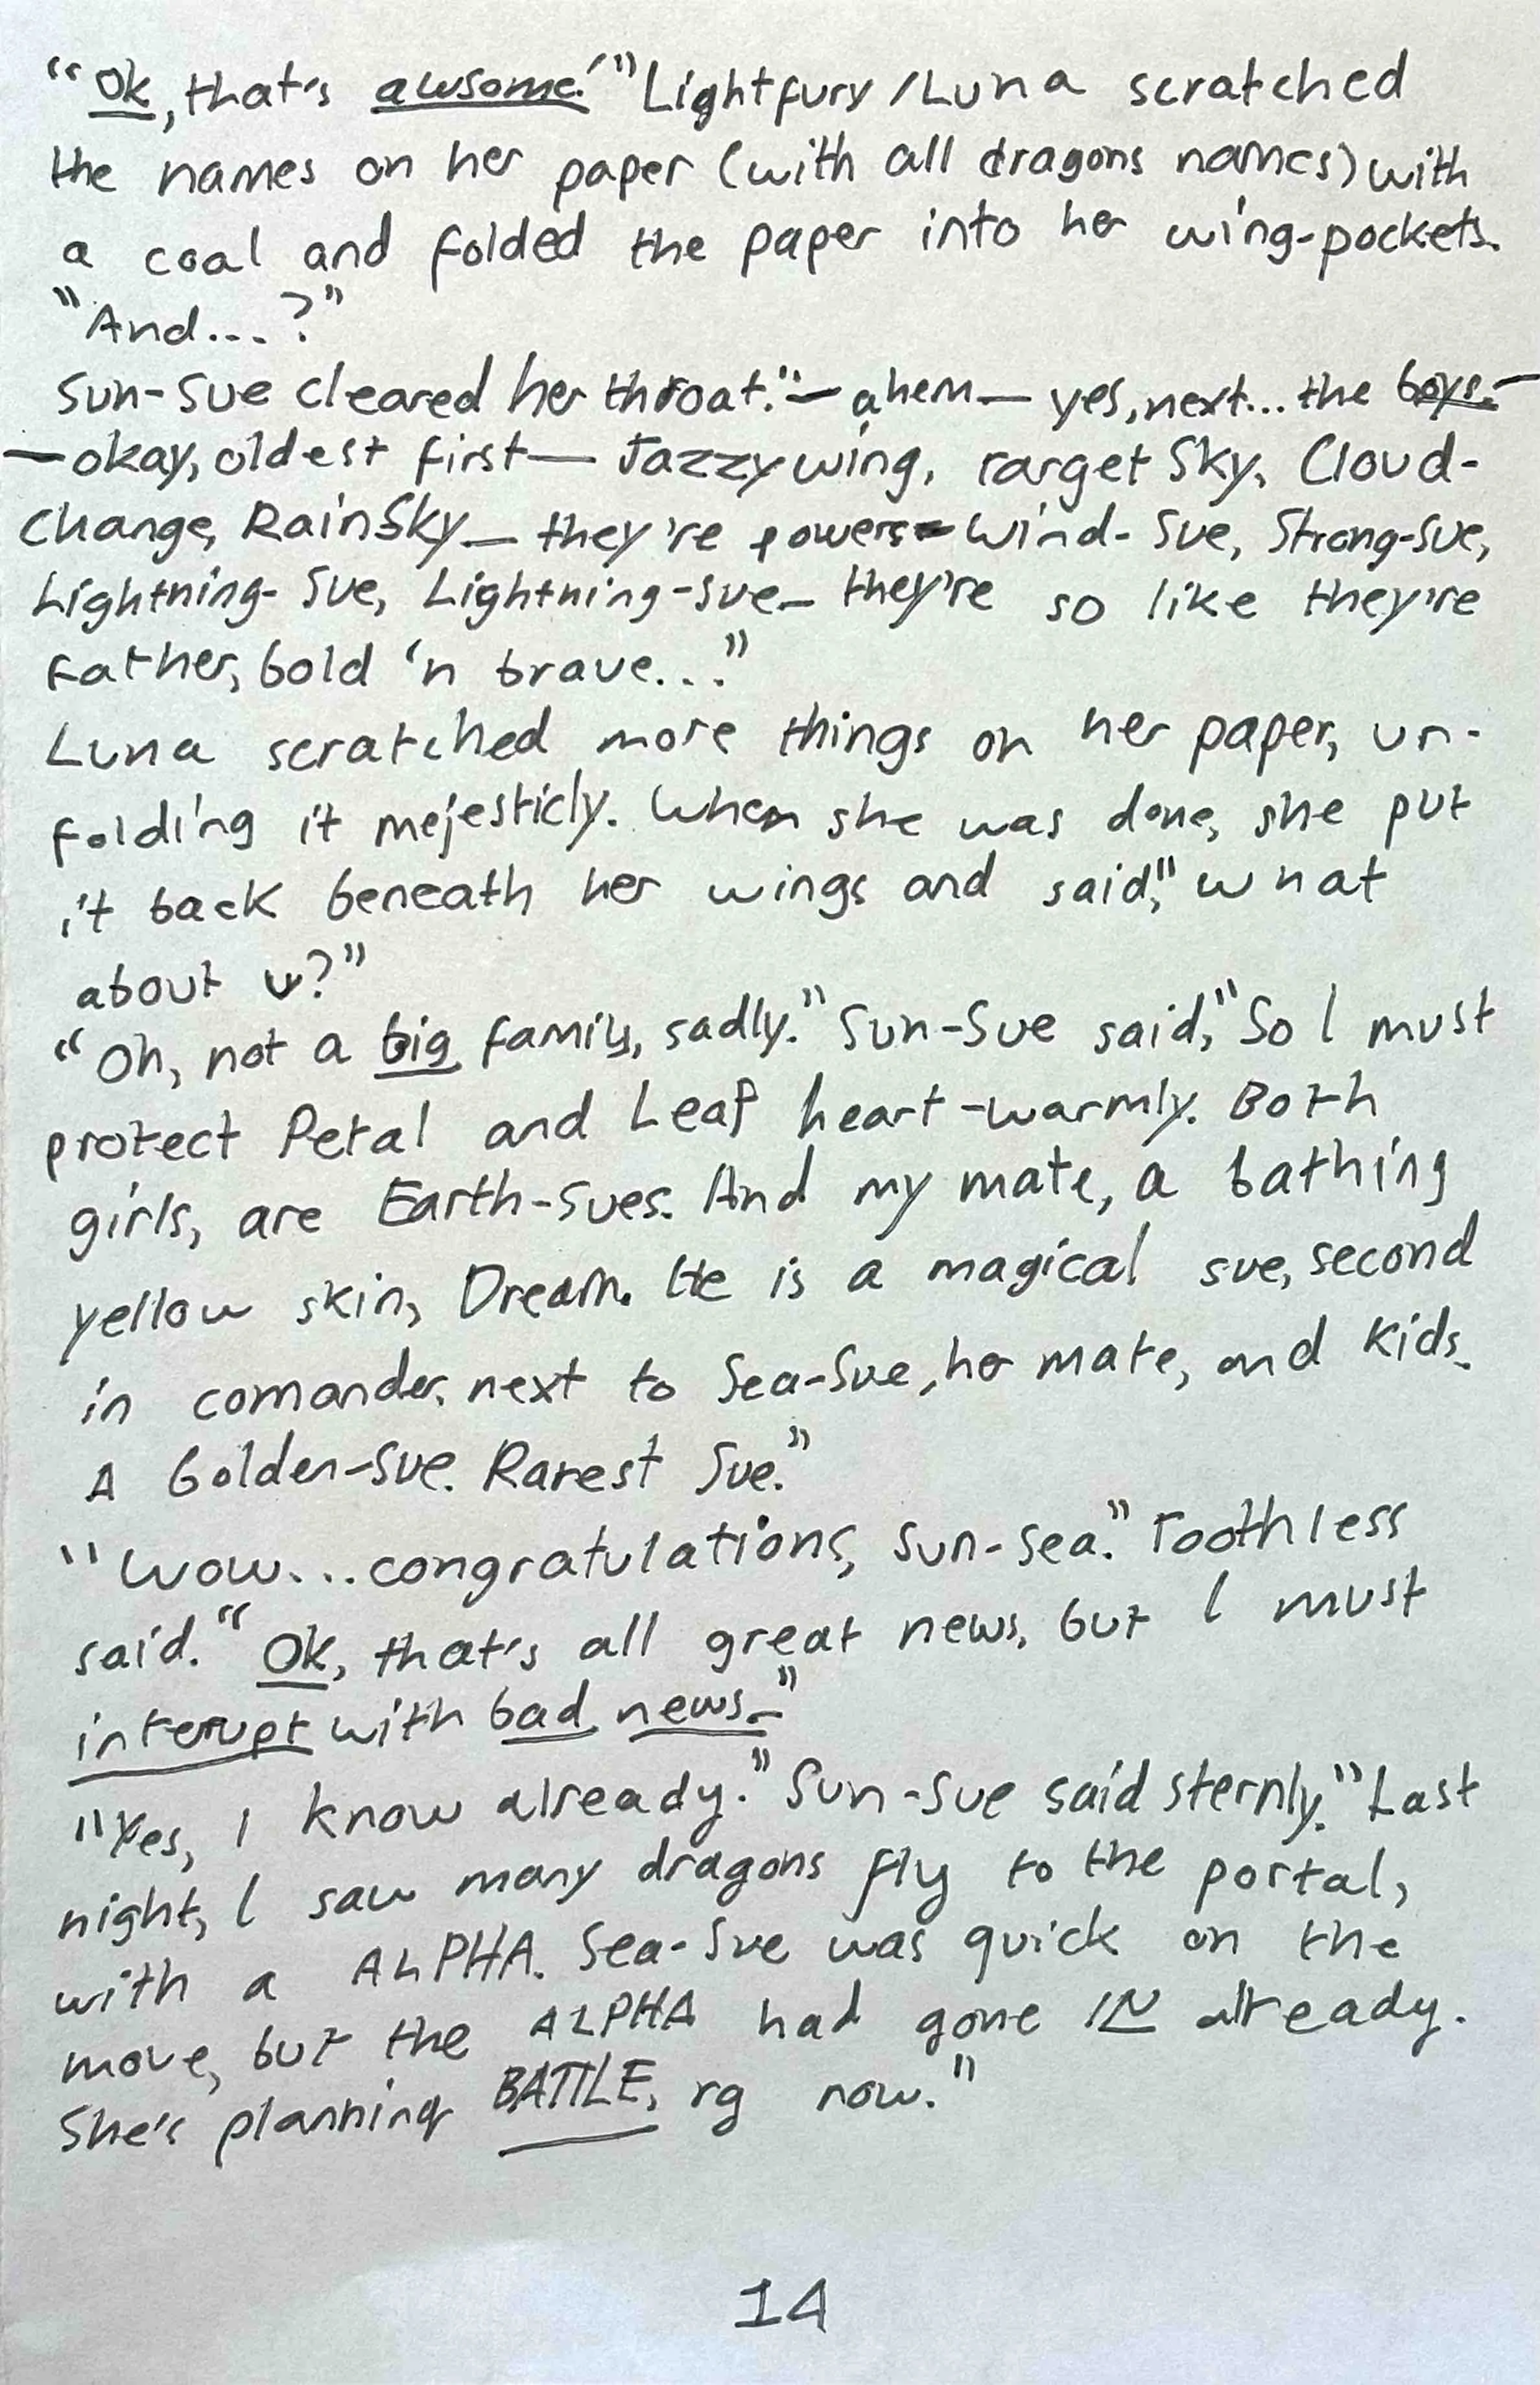 "Ok, that's awsome!" Lightfury/Luna scratched
the names on her paper (with all dragons names) with
a coal and folded the paper into her wing-pockets.
"And...?"
Sun-Sue cleared her throat." — ahem — yes, next... the boys.—
—okay, oldest first— Jazzywing, Target Sky, Cloud-
Change, RainSky— they're powers= Wind-Sue, Strong-Sue,
Lightning-Sue, Lightning-Sue— they're so like they're
Father, bold 'n brave..."
Luna scratched more things on her paper, un-
folding it mejesticly. When she was done, she put
it back beneath her wings and said," what
about u?"
"Oh, not a big family, sadly." Sun-Sue said, "So I must
protect Petal and Leaf heart-warmly. Both
girls, are Earth-Sues. And my mate, a bathing
yellow skin, Dream. He is a magical sue, second
in comander, next to Sea-Sue, her mate, and kids.
A Golden-Sue. Rarest Sue."
"Wow... congratulations, Sun-Sea." Toothless
said. "Ok, that's all great news, but I must
interupt with bad news—"
"Yes, I know already." Sun-Sue said sternly. "Last
night, I saw many dragons fly to the portal,
with a ALPHA. Sea-Sue was quick on the
move, but the ALPHA had gone IN already.
She's planning BATTLE, rg now."
14